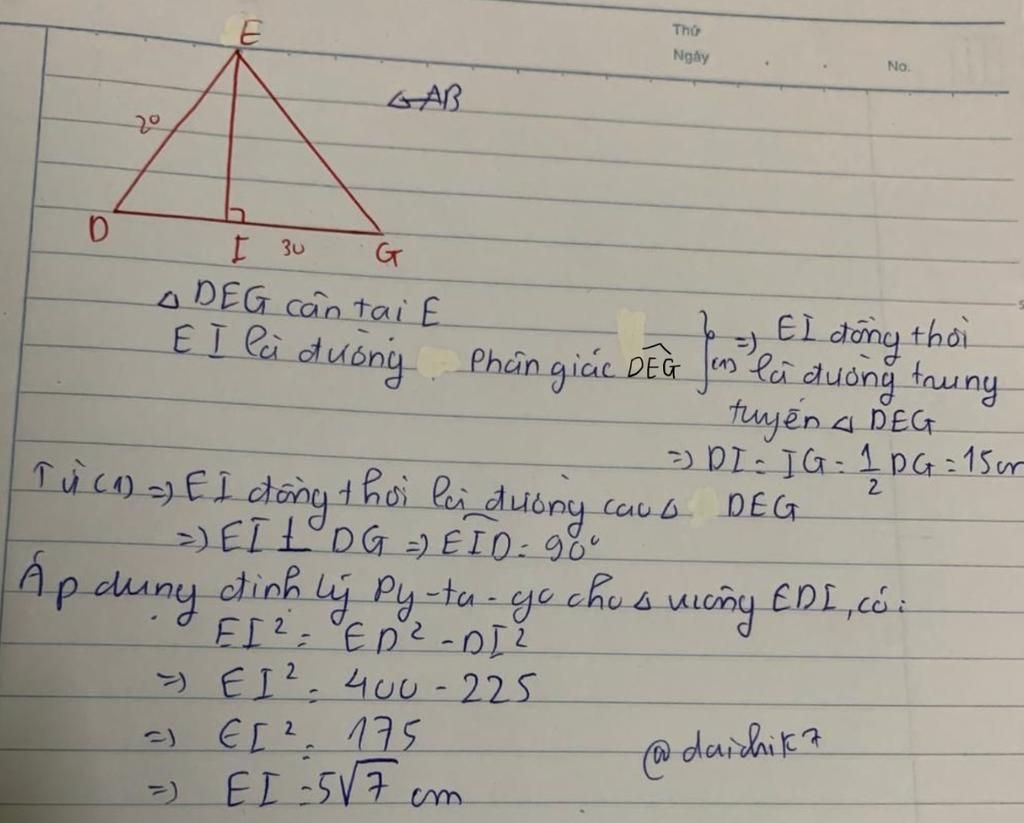 Thứ
Ngày
No.
E
△AB
20
D
I
30
G
△ DEG cân tại E
EI là đường phân giác DEG
(1) => EI đồng thời
là đường trung
tuyến △ DEG
=> DI = IG = 1/2 DG = 15cm
Từ (1) => EI đồng thời là đường cao △ DEG
=> EI ⊥ DG => EID = 90°
Áp dụng định lý Py-ta-go cho △ vuông EDI, có:
EI² = ED² - DI²
=> EI² = 400 - 225
=> EI² = 175
=> EI = 5√7 cm
@daichik7